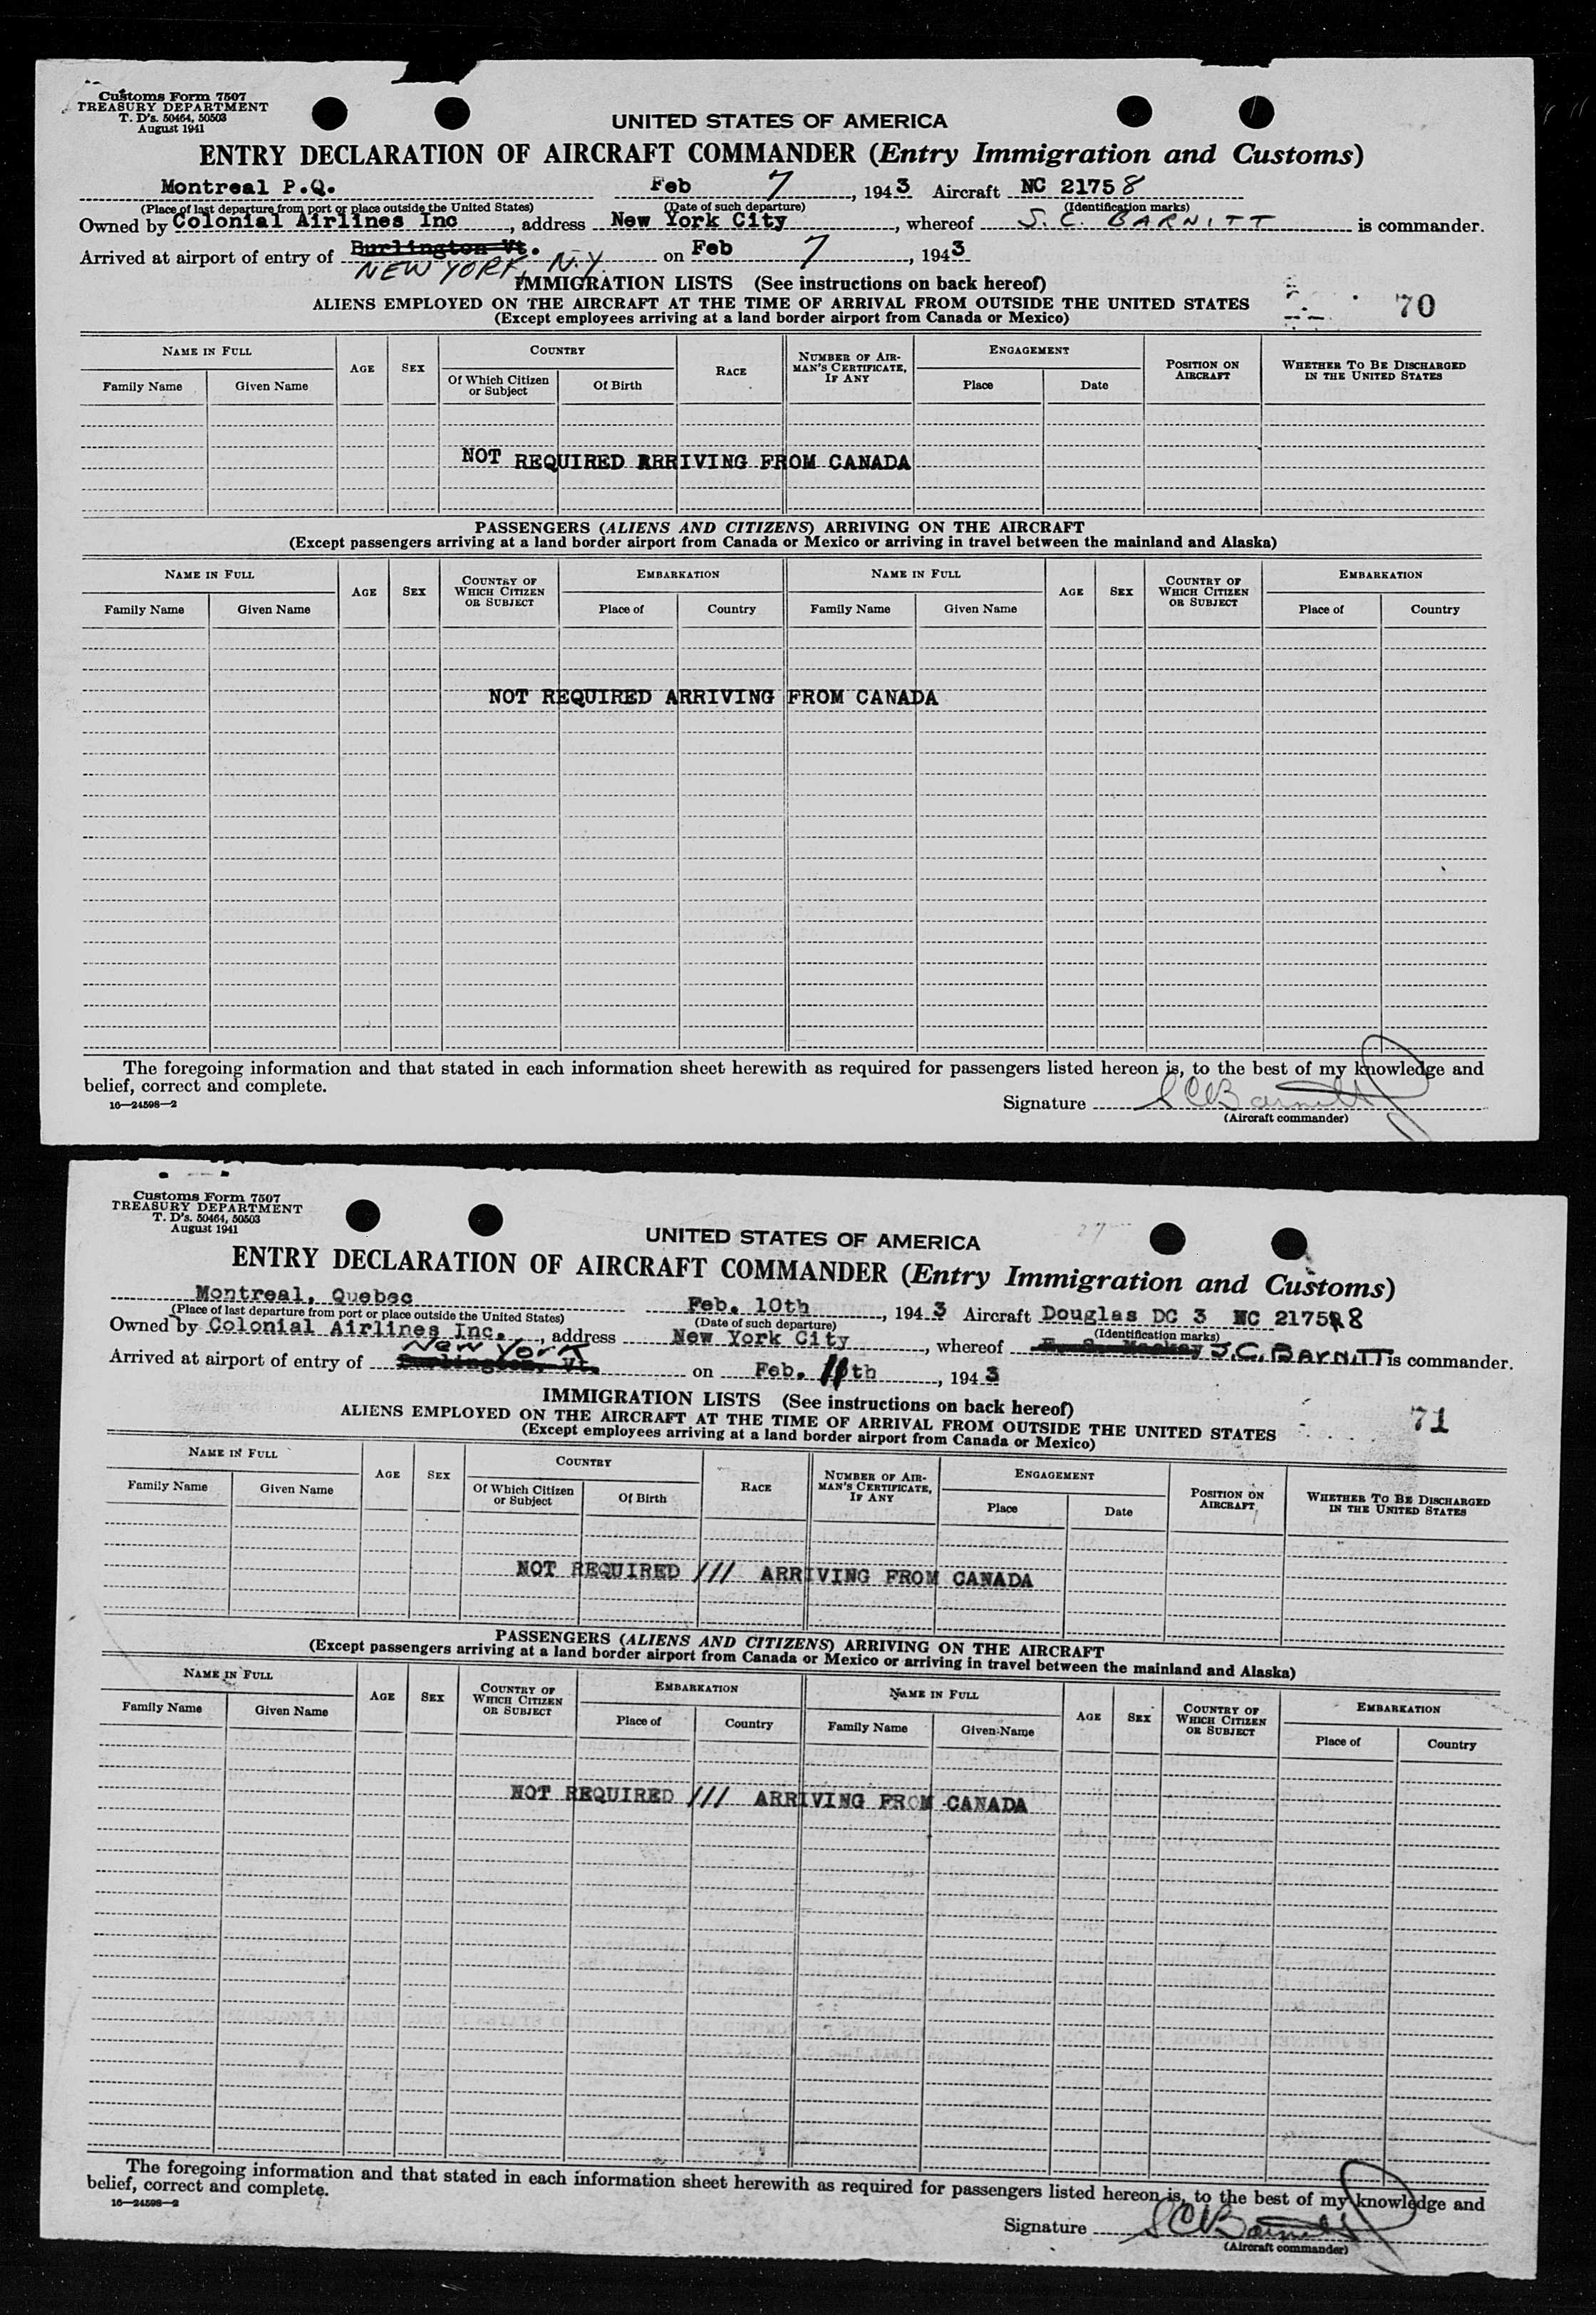 Customs Form 7507
TREASURY DEPARTMENT
T. D's. 50464, 50503
August 1941
UNITED STATES OF AMERICA
ENTRY DECLARATION OF AIRCRAFT COMMANDER (Entry Immigration and Customs)
Montreal P.Q. Feb 7, 1943 Aircraft NC 21758
(Place of last departure from port or place outside the United States) (Date of such departure) (Identification marks)
Owned by Colonial Airlines Inc, address New York City, whereof S. C. BARNITT is commander.
Arrived at airport of entry of Burlington Vt. on Feb 7, 1943
NEW YORK, N.Y.
IMMIGRATION LISTS (See instructions on back hereof)
ALIENS EMPLOYED ON THE AIRCRAFT AT THE TIME OF ARRIVAL FROM OUTSIDE THE UNITED STATES 70
(Except employees arriving at a land border airport from Canada or Mexico)
NAME IN FULL AGE SEX COUNTRY RACE NUMBER OF AIR-MAN'S CERTIFICATE, IF ANY ENGAGEMENT POSITION ON AIRCRAFT WHETHER TO BE DISCHARGED IN THE UNITED STATES
Family Name Given Name Of Which Citizen or Subject Of Birth Place Date
NOT REQUIRED ARRIVING FROM CANADA
PASSENGERS (ALIENS AND CITIZENS) ARRIVING ON THE AIRCRAFT
(Except passengers arriving at a land border airport from Canada or Mexico or arriving in travel between the mainland and Alaska)
NAME IN FULL AGE SEX COUNTRY OF WHICH CITIZEN OR SUBJECT EMBARKATION NAME IN FULL AGE SEX COUNTRY OF WHICH CITIZEN OR SUBJECT EMBARKATION
Family Name Given Name Place of Country Family Name Given Name Place of Country
NOT REQUIRED ARRIVING FROM CANADA
The foregoing information and that stated in each information sheet herewith as required for passengers listed hereon is, to the best of my knowledge and
belief, correct and complete.
16—24598—2
Signature S C Barnitt
(Aircraft commander)
Customs Form 7507
TREASURY DEPARTMENT
T. D's. 50464, 50503
August 1941
UNITED STATES OF AMERICA
ENTRY DECLARATION OF AIRCRAFT COMMANDER (Entry Immigration and Customs)
Montreal, Quebec Feb. 10th, 1943 Aircraft Douglas DC 3 NC 21758
(Place of last departure from port or place outside the United States) (Date of such departure) (Identification marks)
Owned by Colonial Airlines Inc., address New York City, whereof S.C. BARNITT is commander.
New York
Arrived at airport of entry of Burlington, Vt. on Feb. 11th, 1943
IMMIGRATION LISTS (See instructions on back hereof)
ALIENS EMPLOYED ON THE AIRCRAFT AT THE TIME OF ARRIVAL FROM OUTSIDE THE UNITED STATES 71
(Except employees arriving at a land border airport from Canada or Mexico)
NAME IN FULL AGE SEX COUNTRY RACE NUMBER OF AIR-MAN'S CERTIFICATE, IF ANY ENGAGEMENT POSITION ON AIRCRAFT WHETHER TO BE DISCHARGED IN THE UNITED STATES
Family Name Given Name Of Which Citizen or Subject Of Birth Place Date
NOT REQUIRED /// ARRIVING FROM CANADA
PASSENGERS (ALIENS AND CITIZENS) ARRIVING ON THE AIRCRAFT
(Except passengers arriving at a land border airport from Canada or Mexico or arriving in travel between the mainland and Alaska)
NAME IN FULL AGE SEX COUNTRY OF WHICH CITIZEN OR SUBJECT EMBARKATION NAME IN FULL AGE SEX COUNTRY OF WHICH CITIZEN OR SUBJECT EMBARKATION
Family Name Given Name Place of Country Family Name Given Name Place of Country
NOT REQUIRED /// ARRIVING FROM CANADA
The foregoing information and that stated in each information sheet herewith as required for passengers listed hereon is, to the best of my knowledge and
belief, correct and complete.
16—24598—2
Signature S C Barnitt
(Aircraft commander)